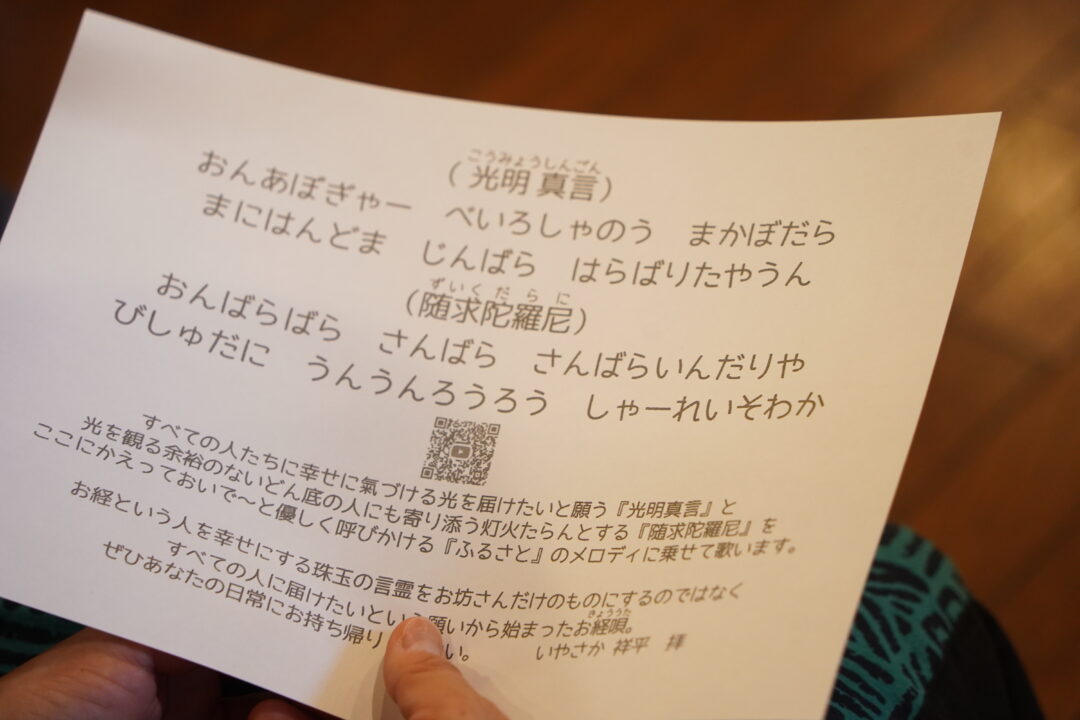 (光明 真言)
こうみょうしんごん
おんあぼぎゃー べいろしゃのう まかぼだら
まにはんどま じんばら はらばりたやうん
(随求陀羅尼)
ずいくだらに
おんばらばら さんばら さんばらいんだりや
びしゅだに うんうんろうろう しゃーれいそわか
すべての人たちに幸せに氣づける光を届けたいと願う『光明真言』と
光を観る余裕のないどん底の人にも寄り添う灯火たらんとする『随求陀羅尼』を
ここにかえっておいで〜と優しく呼びかける『ふるさと』のメロディに乗せて歌います。
お経という人を幸せにする珠玉の言霊をお坊さんだけのものにするのではなく
すべての人に届けたいという願いから始まったお経唄。
きょううた
ぜひあなたの日常にお持ち帰り い。
いやさか 祥平 拝